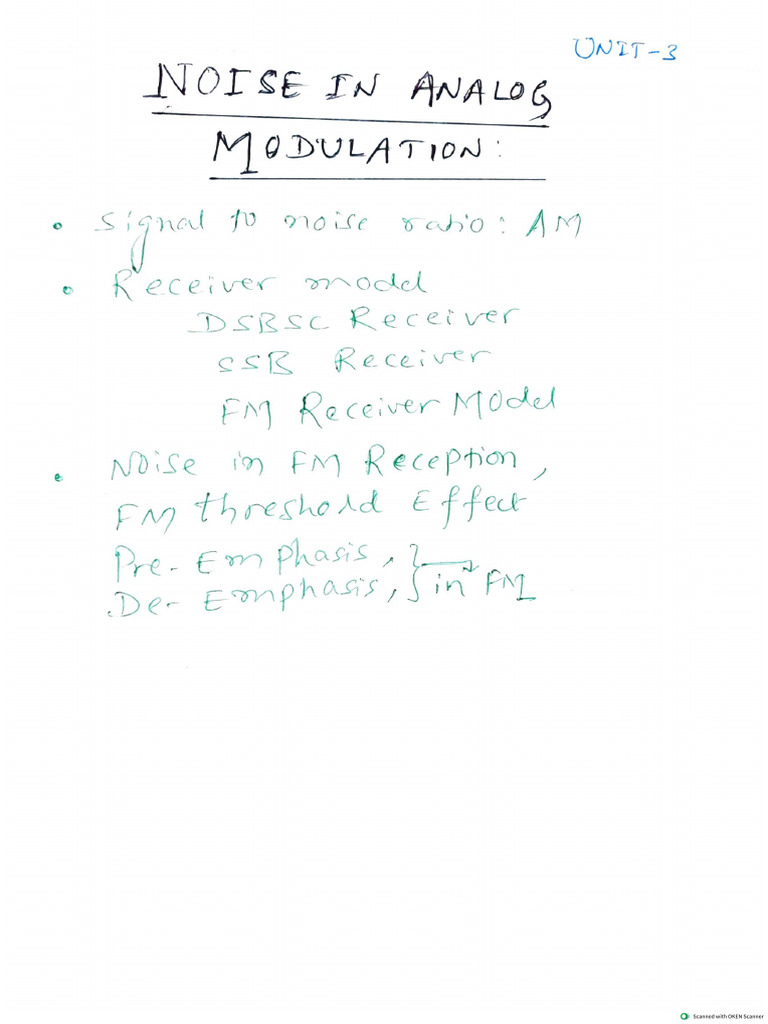 UNIT-3
NOISE IN ANALOG
MODULATION:
• Signal to noise ratio: AM
• Receiver model
DSBSC Receiver
SSB Receiver
FM Receiver Model
• Noise in FM Reception,
FM threshold Effect
Pre-Emphasis,
De-Emphasis, } in FM
Scanned with OKEN Scanner